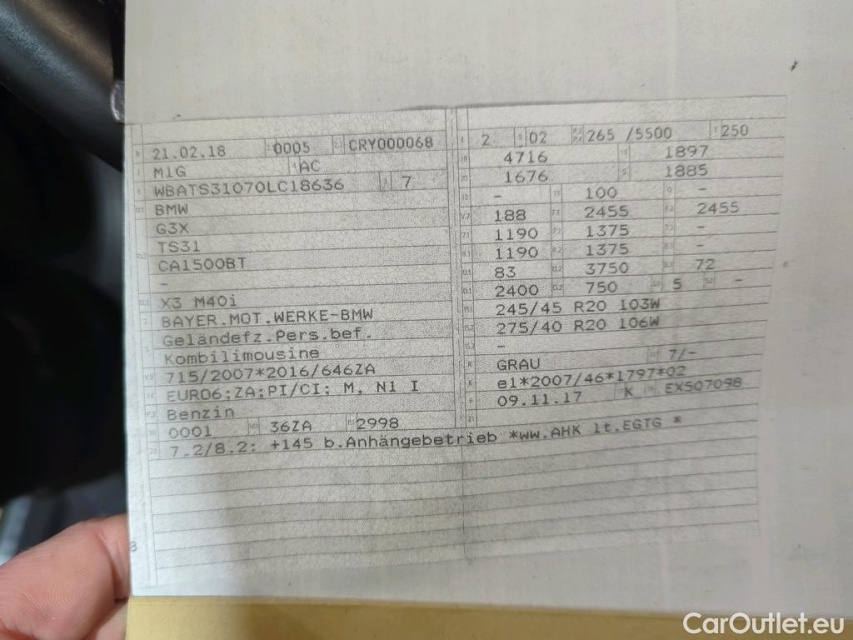 21.02.18 0005 CRY000068
M1G AC
WBATS31070LC18636 7
BMW
G3X
TS31
CA1500BT
-
X3 M40i
BAYER.MOT.WERKE-BMW
Geländefz.Pers.bef.
Kombilimousine
715/2007*2016/646ZA
EURO6;ZA;PI/CI; M, N1 I
Benzin
0001 36ZA 2998
7.2/8.2: +145 b.Anhängebetrieb *WW.AHK lt.EGTG *
2 02 265 /5500 250
4716 1897
1676 1885
- 100 -
188 2455 2455
1190 1375 -
1190 1375 -
83 3750 72
2400 750 5 -
245/45 R20 103W
275/40 R20 106W
-
GRAU 7/-
e1*2007/46*1797*02
09.11.17 K EX507098
CarOutlet.eu